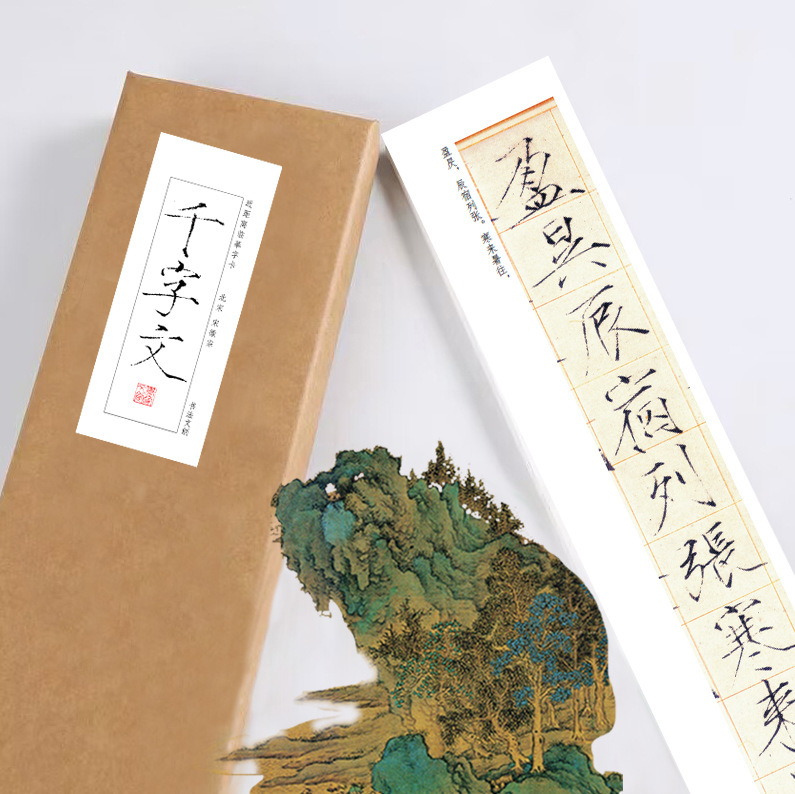 千字文
近距离临摹字卡
北宋 宋徽宗
盈昃，辰宿列张。寒来暑往，
盈昃辰宿列張寒来